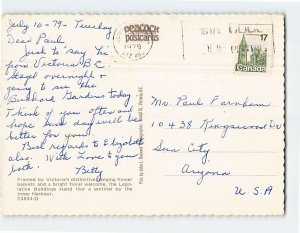 July 10-79 - Tuesday
Dear Paul
Just to say hi
from Victoria B.C.
overnight &
going to see the
Buchard Gardens today
Think of you often and
hope each day will be
better for you.
Best regards to Elizabeth
also. With Love to you
both.
Betty
Framed by Victoria's distinctive hanging flower
baskets and a bright floral welcome, the Legis-
lative Buildings stand like a sentinel by the
Inner Harbour.
23834-D
Peacock
Postcards
1979
17
Canada
Mr. Paul Farnham
10438 Kingswood
Sun City,
Arizona
U.S.A